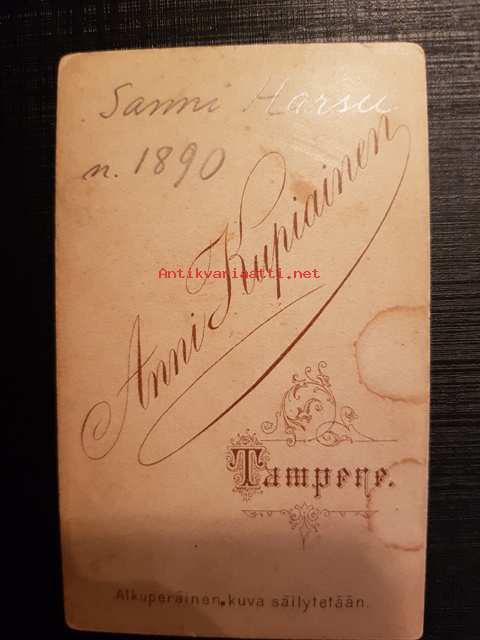 Sanni Harsu
n. 1890
Anni Kupiainen
Antikvariaatti.net
Tampere.
Alkuperäinen kuva säilytetään.